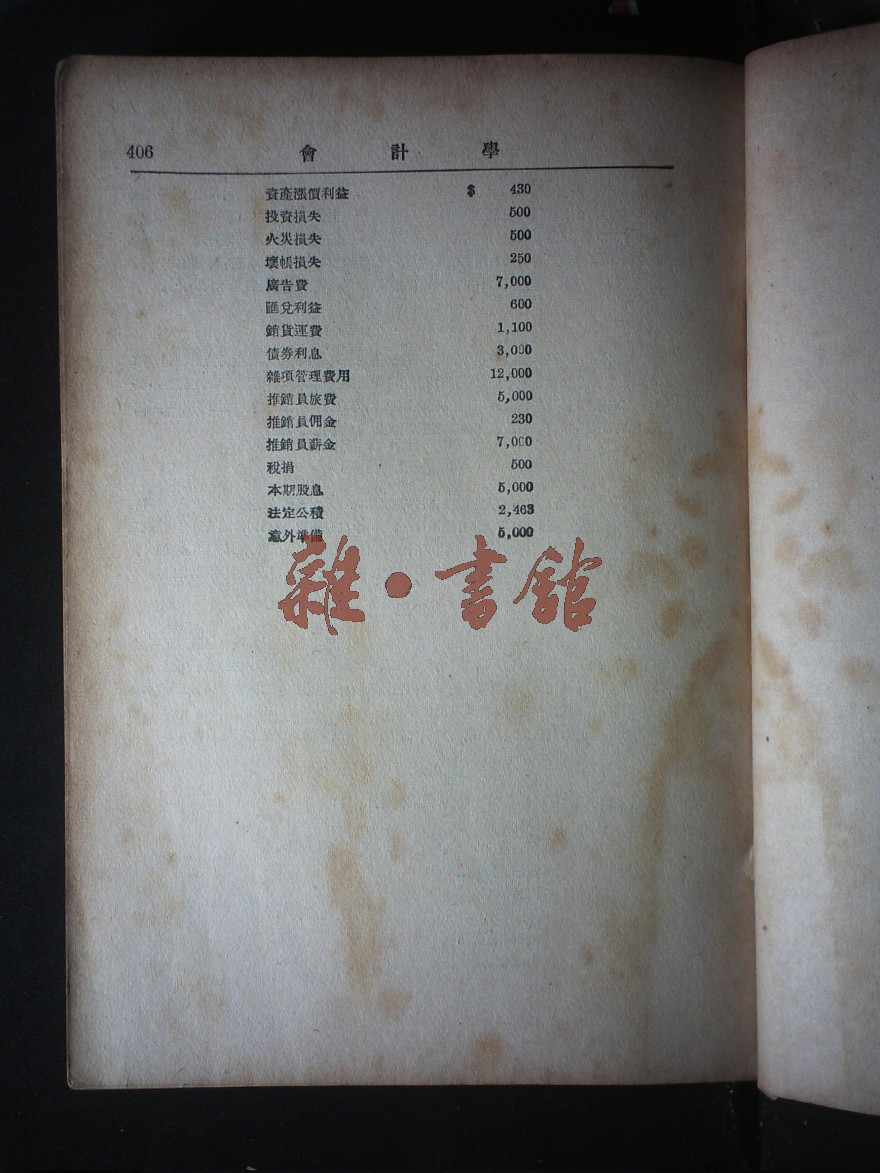 406 會計學
資產漲價利益 $ 430
投資損失 500
火災損失 500
壞帳損失 250
廣告費 7,000
匯兌利益 600
銷貨運費 1,100
債券利息 3,000
雜項管理費用 12,000
推銷員旅費 5,000
推銷員佣金 230
推銷員薪金 7,000
稅捐 500
本期股息 5,000
法定公積 2,463
意外準備 5,000
雜·書館